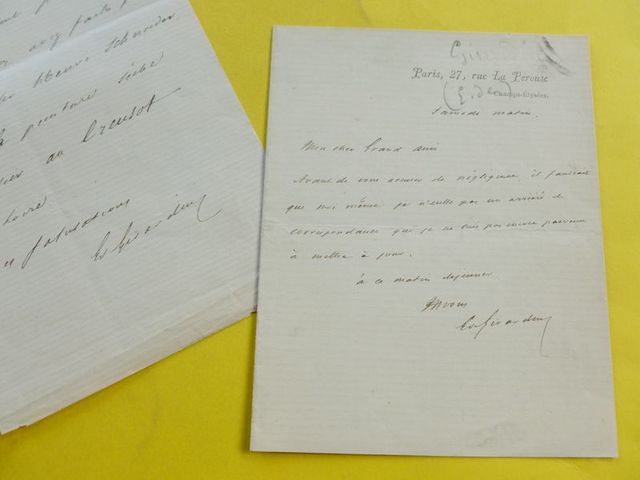 Henri Schneider
peinture
au Creusot
salutations
E. de Girardin
Paris, 27, rue La Pérouse
(E. de)
Champs-Élysées.
Samedi matin.
Mon cher Grand ami
Avant de vous accuser de négligence il faudrait
que moi même je n'eusse pas un arriéré de
correspondance que je ne suis pas encore parvenu
à mettre à jour.
à ce matin déjeuner
E de Girardin